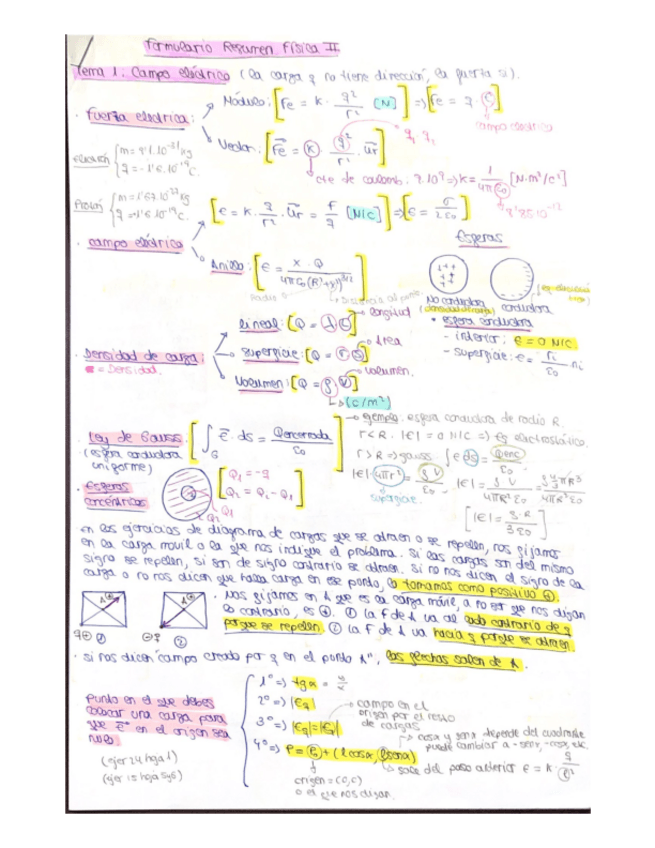 Formulario Resumen Física II
Tema 1. Campo eléctrico (la carga q no tiene dirección, la fuerza si).
· fuerza electrica:
Módulo: [Fe = K · q²/r² [N]] => [Fe = q · E]
campo electrico
Vector: [Fe = K · q²/r² · ur]
q₁ q₂
cte de coulomb. 9·10⁹ => K = 1/4πε₀ [N·m²/C²]
electrón { m = 9'1·10⁻³¹ kg
q = -1'6·10⁻¹⁹ C.
Protón { m = 1'67·10⁻²⁷ kg
q = +1'6·10⁻¹⁹ C.
8'85·10⁻¹²
· campo eléctrico
[E = K · q/r² · ur = F/q [N/C]] => [E = σ/2ε₀]
Anillo: [E = x · Q / 4πε₀(R²+x²)^3/2]
Radio
Distancia al punto
Esferas
No conductora
conductora
· Densidad de carga:
= Densidad.
lineal: [Q = λ · L] longitud
superficie: [Q = σ · S] Area
Volumen: [Q = ρ · V] volumen.
(C/m³)
* esfera conductora
- interior: E = 0 N/C.
- superficie: E =
· Ley de Gauss:
(esfera conductora
uniforme)
[∫ E · ds = Qencerrada / ε₀]
ejemplo: esfera conductora de radio R.
r < R · |E| = 0 N/C => eq electrostático.
r > R => gauss · ∫ E ds = Qenc / ε₀
|E| 4πr² = ρ V / ε₀
superficie.
|E| = ρ V / 4πR²ε₀ = ρ 4/3 πR³ / 4πR²ε₀
[|E| = ρ · R / 3ε₀]
· Esferas
concéntricas
Q₂
Q₁
en los ejercicios de diagrama de cargas que se atraen o se repelen, nos fijamos
en la carga movil o la que nos indique el problema. Si las cargas son del mismo
signo se repelen, si son de signo contrario se atraen. Si no nos dicen el signo de la
carga o no nos dicen que haya carga en ese punto, lo tomamos como positivo ⊕.
· Nos fijamos en A que es la carga móvil, a no ser que nos digan
lo contrario, es ⊕. ① la F de A va al lado contrario de q
porque se repelen. ② la F de A va hacia q porque se atraen.
A⊕
A⊕
q⊕ ①
⊖q ②
· si nos dicen "campo creado por q en el punto A", las flechas salen de A.
Punto en el que debes
colocar una carga para
que E en el origen sea
nulo
(ejer 24 hoja 1)
1º => tgα = y/x
2º => |Eq|
campo en el
origen por el resto
de cargas
3º => |Eq| = |E|
cosα y senα depende del cuadrante
puede cambiar a -senα, -cosα, etc.
origen = (0,0)
o el que nos digan.
sale del paso anterior E = K · q/r²